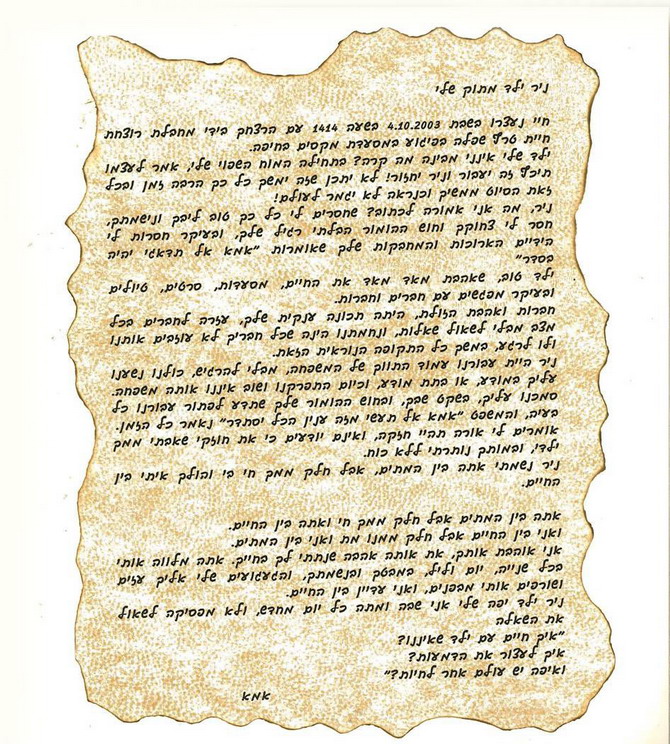 ניר ילד מתוק שלי
חיי נעצרו בשבת 4.10.2003 בשעה 1414 עם הרצחך בידי מחבלת רוצחת
חיית טרף שפלה בפיגוע במסעדת מקסים בחיפה.
ילד שלי אינני מבינה מה קרה? בתחילה המוח השפוי שלי, אמר לעצמו
תיכף זה יעבור וניר יחזור! לא יתכן שזה ימשך כל כך הרבה זמן ובכל
זאת הסיוט ממשיך וכנראה לא יגמר לעולם!
ניר, מה אני אמורה לכתוב? שחסרים לי כל כך טוב ליבך ונישמתך,
חסר לי צחוקך וחוש ההומור הבלתי רגיל שלך, ובעיקר חסרות לי
הידיים הארוכות והמחבקות שלך שאומרות "אמא אל תדאגי יהיה
בסדר"
ילד טוב, שאהבת מאד מאד את החיים, מסעדות, סרטים, טיולים
ובעיקר מפגשים עם חברים וחברות.
חברות ואהבת הזולת, היתה תכונה ענקית שלך, עזרה לחברים בכל
מצב מבלי לשאול שאלות, ונחמתנו הינה שכל חבריך לא עוזבים אותנו
ולו לרגע, במשך כל התקופה הנוראית הזאת.
ניר היית עבורנו עמוד התווך של המשפחה, מבלי להרגיש, כולנו נשענו
עליך במודע, או בתת מודע, וכיום התפרקנו ושוב איננו אותה משפחה.
סמכנו עליך, בשקט שבך, ובחוש ההומור שלך שתדע לפתור עבורנו כל
בעיה, והמשפט "אמא אל תעשי מזה ענין הכל יסתדר" נאמר כל הזמן.
אומרים לי אורה תהיי חזקה, ואינם יודעים כי את חוזקי שאבתי ממך
ילדי, ובמותך נותרתי ללא כוח.
ניר נשמתי אתה בין המתים, אבל חלק ממך חי בי והולך איתי בין
החיים.
אתה בין המתים אבל חלק ממך חי ואתה בין החיים.
ואני בין החיים אבל חלק ממנו מת ואני בין המתים.
אני אוהבת אותך, את אותה אהבה שנתתי לך בחייך. אתה מלווה אותי
בכל שנייה, יום וליל, במבטך ובנשמתך, והגעגועים שלי אליך עזים
ושורפים אותי מבפנים, ואני עדיין בין החיים.
ניר ילד יפה שלי אני שבה ומתה כל יום מחדש, ולא מפסיקה לשאול
את השאלה
"איך חיים עם ילד שאיננו?
איך לעצור את הדמעות?
ואיפה יש עולם אחר לחיות?"
אמא